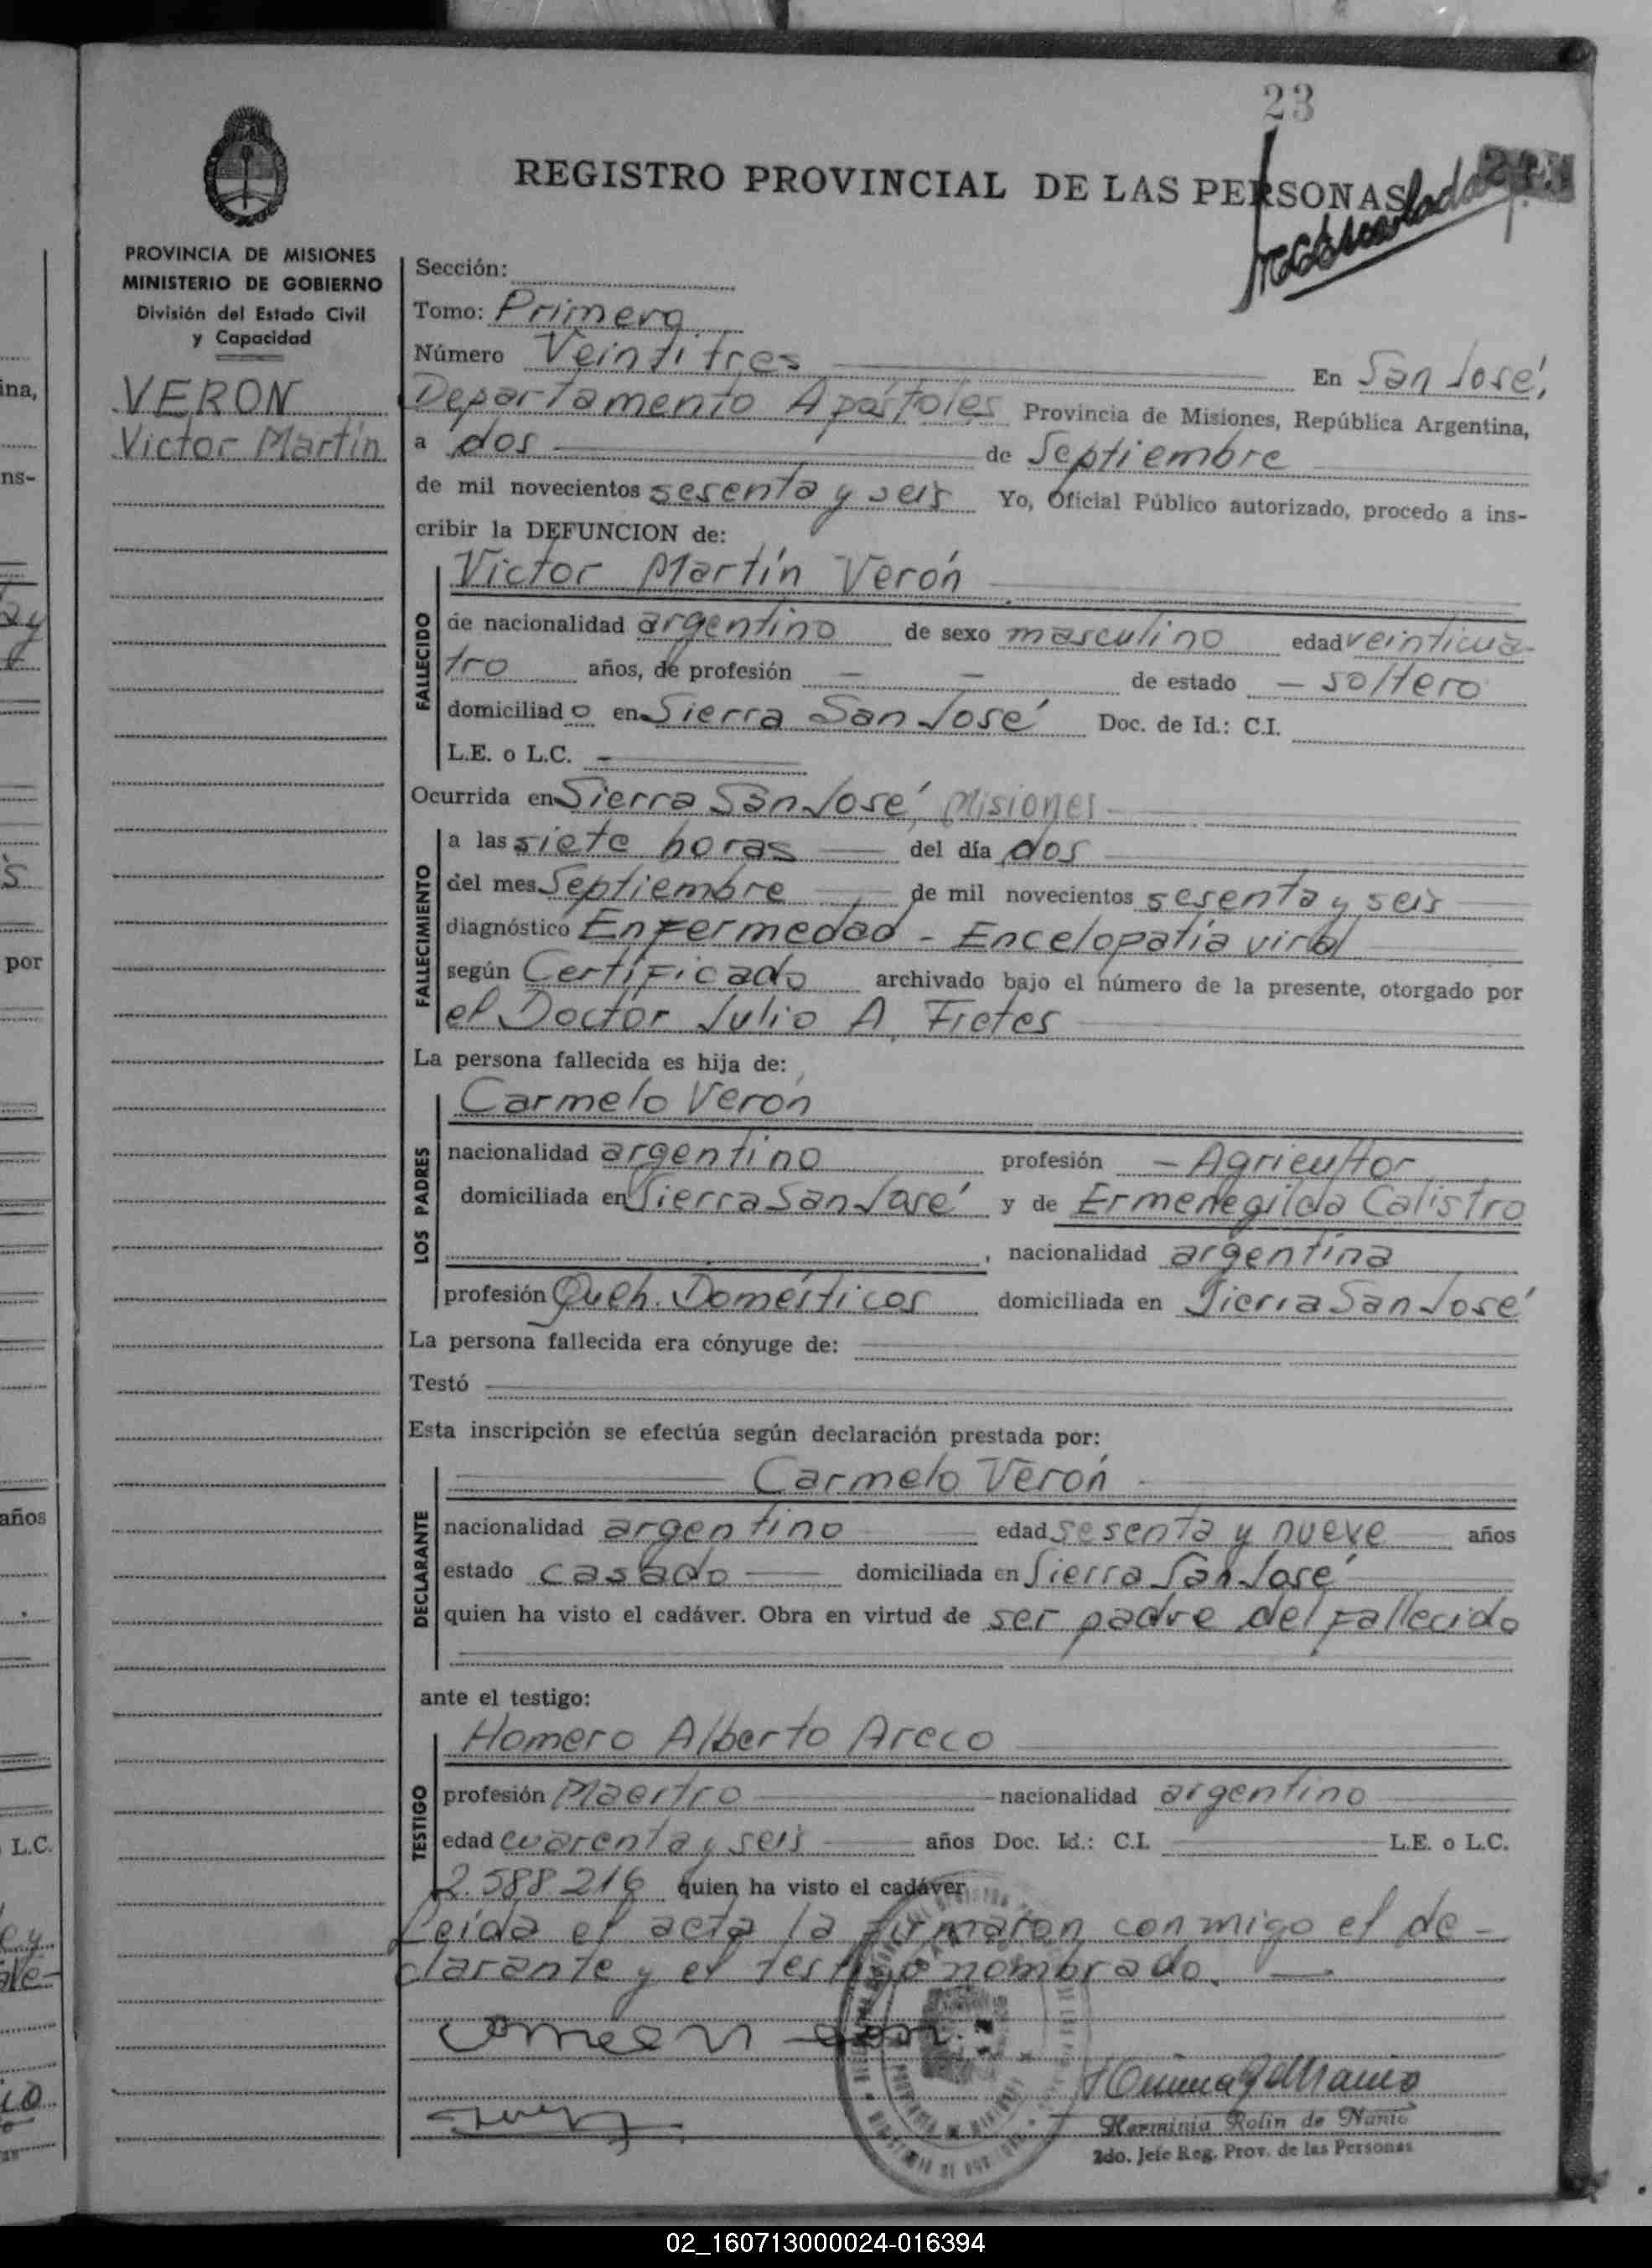 23
REGISTRO PROVINCIAL DE LAS PERSONAS
PROVINCIA DE MISIONES
MINISTERIO DE GOBIERNO
División del Estado Civil
y Capacidad
VERON
Victor Martín
Sección:
Tomo: Primero
Número Veintitres En San José,
Departamento Apóstoles Provincia de Misiones, República Argentina,
a dos de Septiembre
de mil novecientos sesenta y seis Yo, Oficial Público autorizado, procedo a ins-
cribir la DEFUNCION de:
FALLECIDO
Victor Martín Verón
de nacionalidad argentino de sexo masculino edad veinticua-
tro años, de profesión — — de estado - soltero
domiciliado en Sierra San José Doc. de Id.: C.I.
L.E. o L.C. —
Ocurrida en Sierra San José, Misiones
FALLECIMIENTO
a las siete horas del día dos
del mes Septiembre de mil novecientos sesenta y seis
diagnóstico Enfermedad - Encelopatía viral
según Certificado archivado bajo el número de la presente, otorgado por
el Doctor Julio A. Fretes
La persona fallecida es hija de:
LOS PADRES
Carmelo Verón
nacionalidad argentino profesión - Agricultor
domiciliada en Sierra San José y de Ermenegilda Calistro
, nacionalidad argentina
profesión Queh. Domésticos domiciliada en Sierra San José
La persona fallecida era cónyuge de:
Testó
Esta inscripción se efectúa según declaración prestada por:
DECLARANTE
Carmelo Verón
nacionalidad argentino edad sesenta y nueve años
estado casado domiciliada en Sierra San José
quien ha visto el cadáver. Obra en virtud de ser padre del fallecido
ante el testigo:
TESTIGO
Homero Alberto Areco
profesión Maestro nacionalidad argentino
edad cuarenta y seis años Doc. Id.: C.I. L.E. o L.C.
2.588.216 quien ha visto el cadáver
Leída el acta la firmaron conmigo el de-
clarante y el testigo nombrado.
Herminia Rolin de Nanio
2do. Jefe Reg. Prov. de las Personas
ina,
ns-
por
años
L.C.
02_160713000024-016394